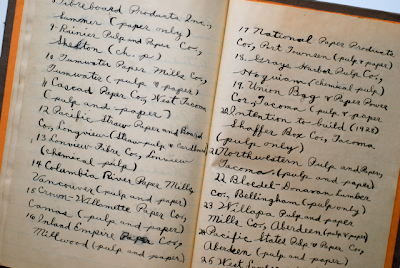 Fibreboard Products Inc,
Sumner (paper only)
9 Rainier Pulp and Paper Co,
Shelton (ch. p)
10 Tumwater Paper Mills Co,
Tumwater (pulp & paper)
Cascad Paper Co, West Tacoma
(pulp and paper)
12 Pacific Straw Paper and Board
Co, Longview (Straw-pulp & cardboard)
13 Longview Fibre Co, Longview
(chemical-pulp)
14 Columbia River Paper Mills,
Vancouver (pulp and paper)
15 Crown-Willamette Paper Co,
Camas (pulp and paper)
16 Inland Empire Co,
Millwood (pulp and paper)
17 National Paper Products
Co, Port Townsen (pulp & paper)
18 Grays Harbor Pulp Co,
Hoquiam (chemical pulp)
19 Union Bag & Paper Power
Co, Tacoma (pulp & paper
20 Intention to build (1928)
Shaffer Box Co, Tacoma
(pulp only)
21 Northwestern Pulp and Paper,
Tacoma, (pulp and paper)
22 Bloedel-Donavan Lumber
Co, Bellingham (pulp only)
23 Willapa Pulp and paper
Mills Co, Aberdeen (pulp & paper)
24 Pacific States Pulp & Paper Co,
Aberdeen (pulp and paper)
25 West